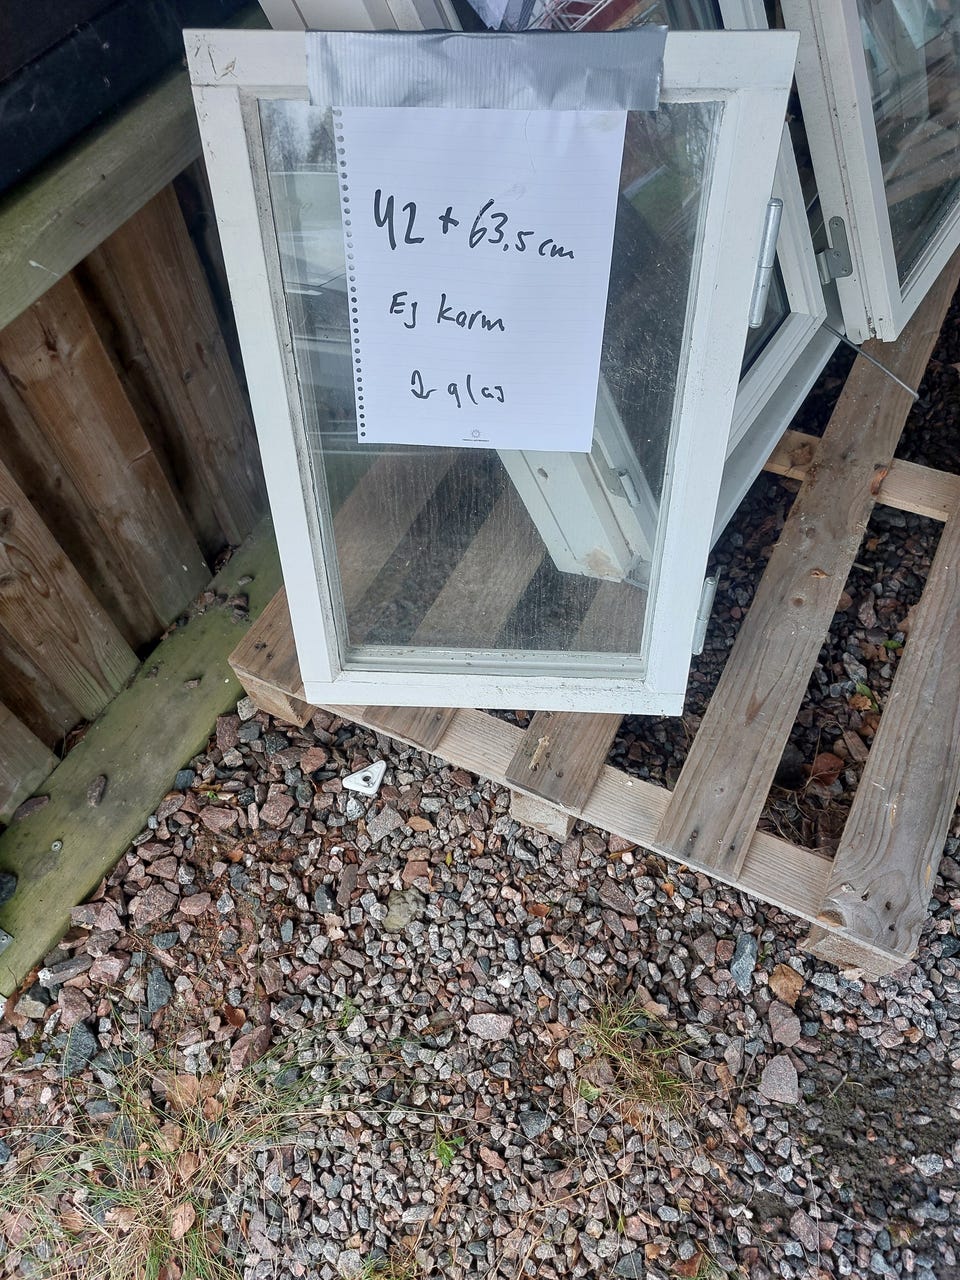 42 + 63,5 cm
Ej karm
2-glas